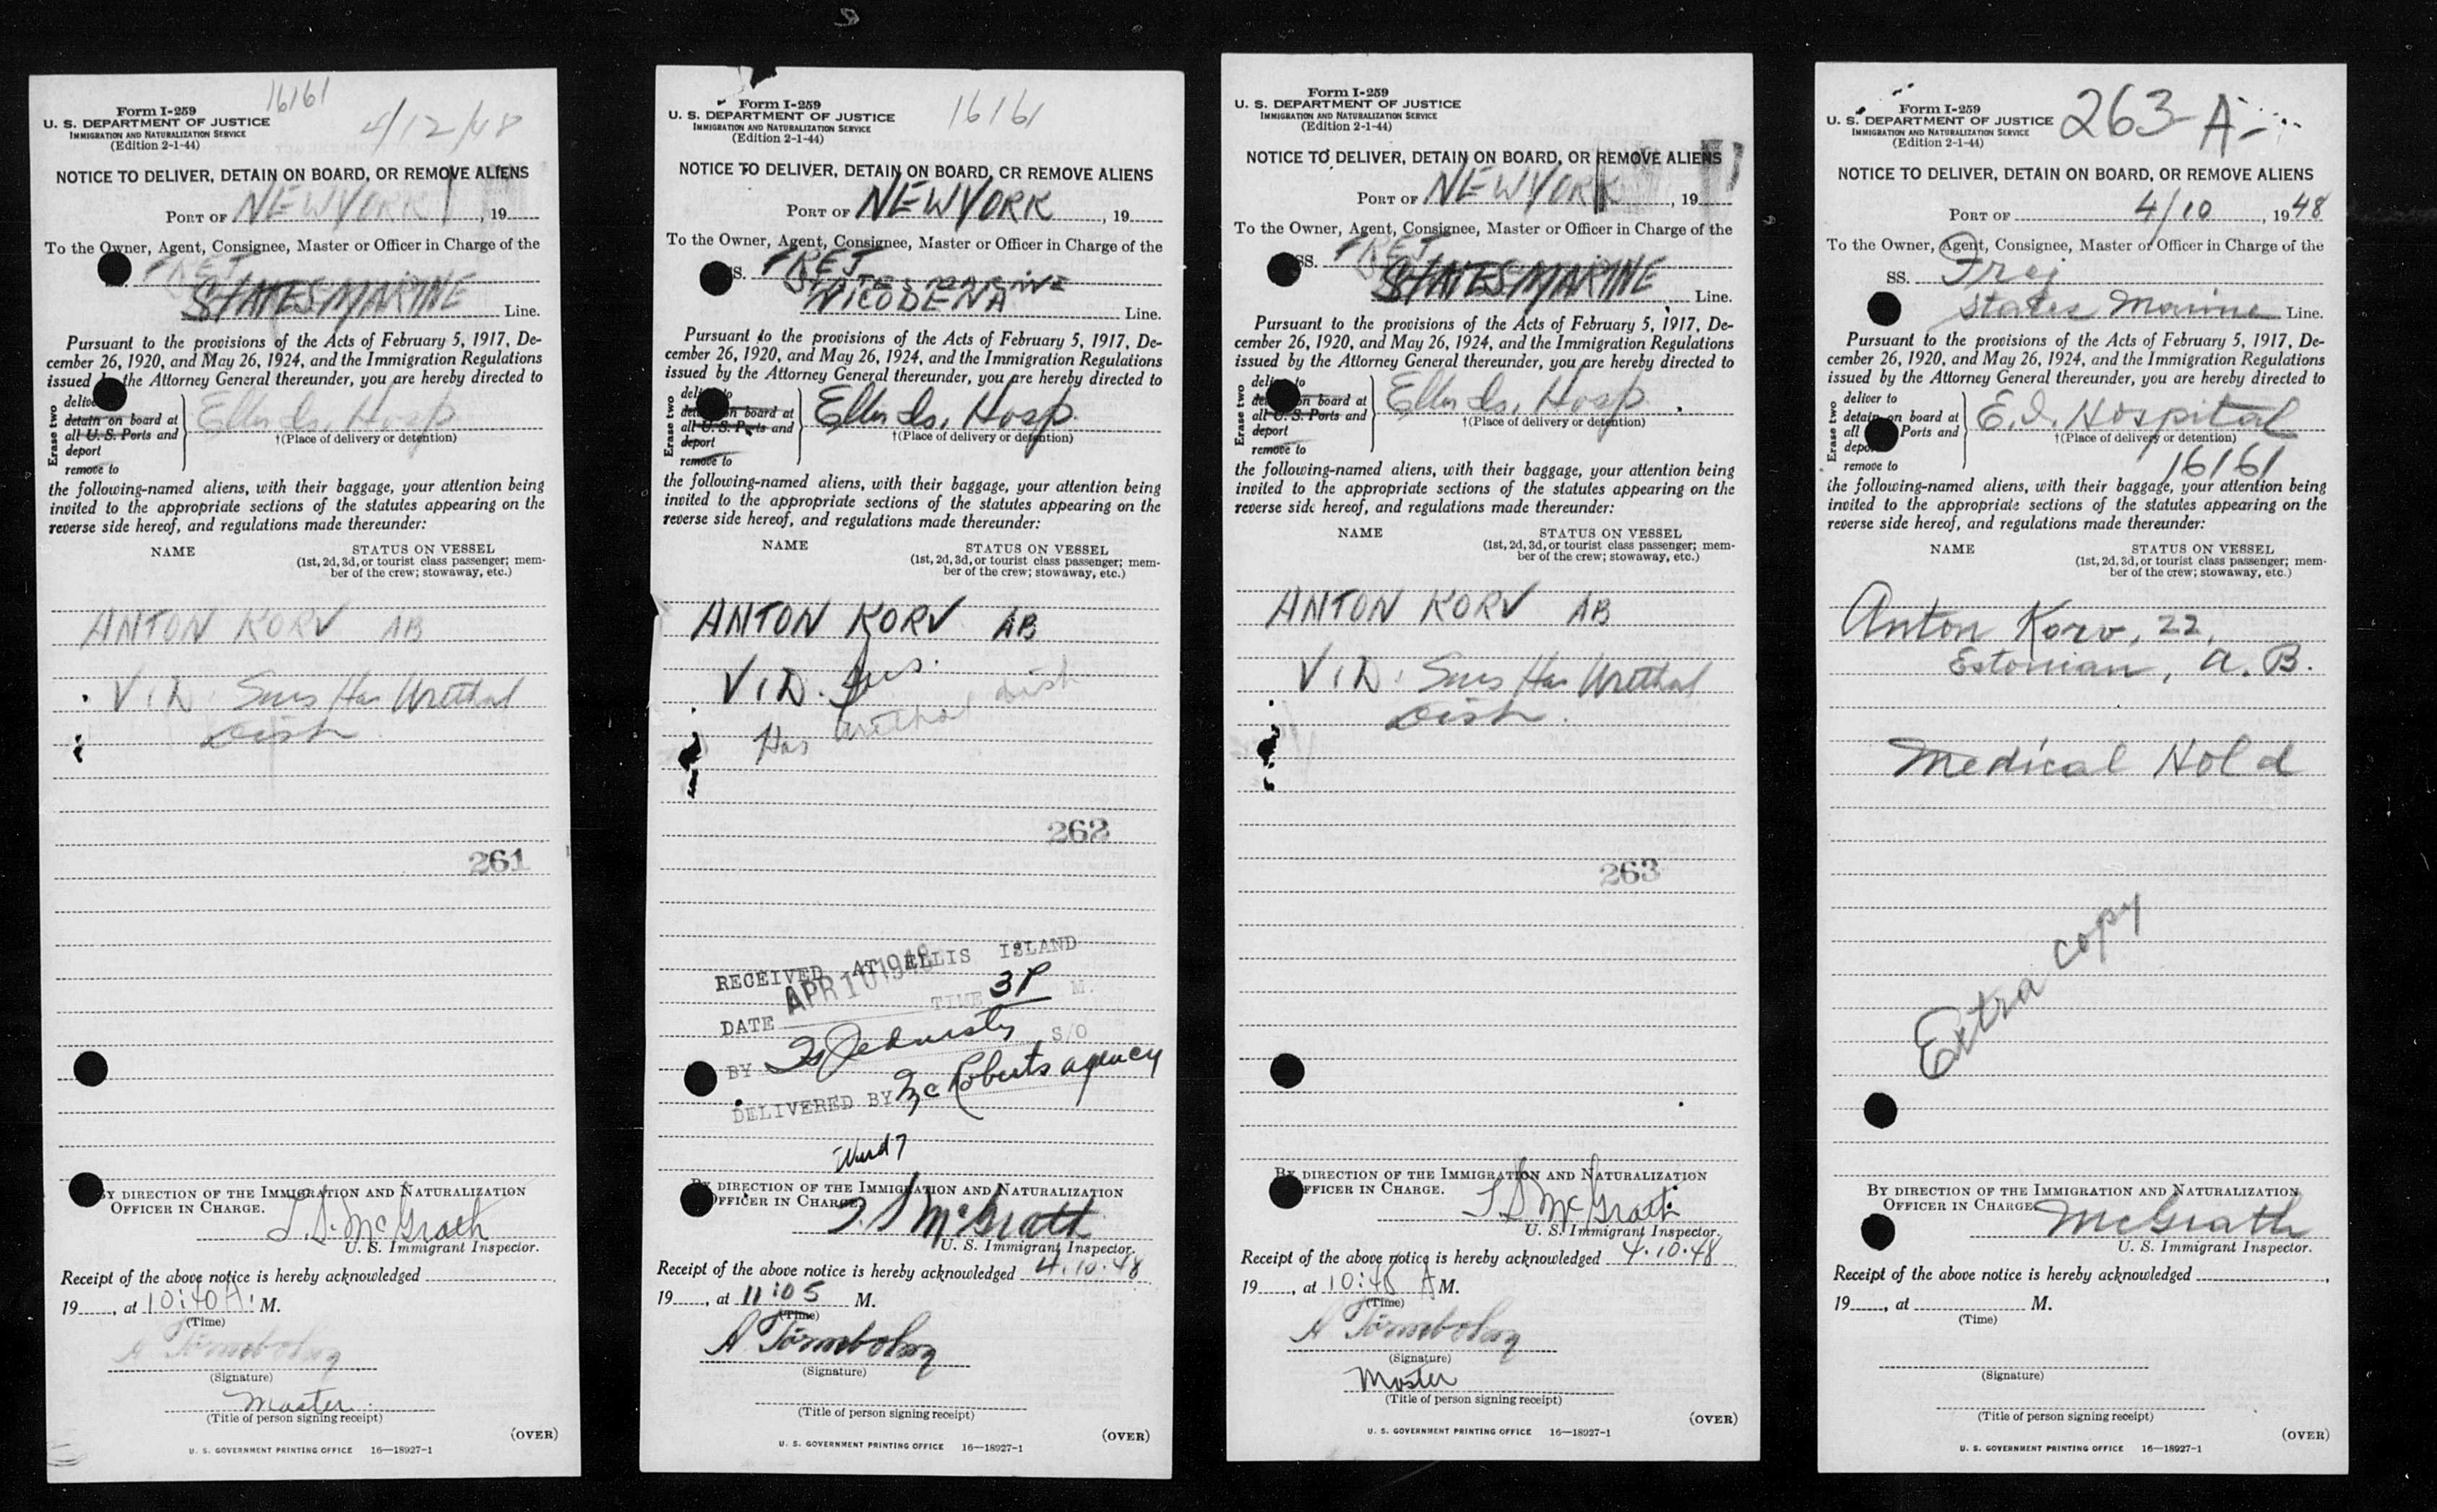 16161
Form I-259
U. S. DEPARTMENT OF JUSTICE
IMMIGRATION AND NATURALIZATION SERVICE
(Edition 2-1-44)
4/12/48
NOTICE TO DELIVER, DETAIN ON BOARD, OR REMOVE ALIENS
PORT OF NEW YORK, 19
To the Owner, Agent, Consignee, Master or Officer in Charge of the
FREJ
STATES MARINE Line.
Pursuant to the provisions of the Acts of February 5, 1917, De-
cember 26, 1920, and May 26, 1924, and the Immigration Regulations
issued the Attorney General thereunder, you are hereby directed to
Erase two
deliver
detain on board at
all U. S. Ports and
deport
remove to
Ellis Is. Hosp
†(Place of delivery or detention)
the following-named aliens, with their baggage, your attention being
invited to the appropriate sections of the statutes appearing on the
reverse side hereof, and regulations made thereunder:
NAME STATUS ON VESSEL
(1st, 2d, 3d, or tourist class passenger; mem-
ber of the crew; stowaway, etc.)
ANTON KORV AB
V.D. Sus Has Urethal
Dish
261
BY DIRECTION OF THE IMMIGRATION AND NATURALIZATION
OFFICER IN CHARGE.
T. S. McGrath
U. S. Immigrant Inspector.
Receipt of the above notice is hereby acknowledged
19, at 10:40 A. M.
(Time)
(Signature)
Master
(Title of person signing receipt)
(OVER)
U. S. GOVERNMENT PRINTING OFFICE 16—18927-1
Form I-259
U. S. DEPARTMENT OF JUSTICE
IMMIGRATION AND NATURALIZATION SERVICE
(Edition 2-1-44)
16161
NOTICE TO DELIVER, DETAIN ON BOARD, OR REMOVE ALIENS
PORT OF NEW YORK, 19
To the Owner, Agent, Consignee, Master or Officer in Charge of the
S. FREJ
STATES MARINE
NICODENA Line.
Pursuant to the provisions of the Acts of February 5, 1917, De-
cember 26, 1920, and May 26, 1924, and the Immigration Regulations
issued by the Attorney General thereunder, you are hereby directed to
Erase two
deliver to
detain on board at
all U. S. Ports and
deport
remove to
Ellis Is. Hosp.
†(Place of delivery or detention)
the following-named aliens, with their baggage, your attention being
invited to the appropriate sections of the statutes appearing on the
reverse side hereof, and regulations made thereunder:
NAME STATUS ON VESSEL
(1st, 2d, 3d, or tourist class passenger; mem-
ber of the crew; stowaway, etc.)
ANTON KORV AB
V.D. Sus.
Has Urethal Dish
262
RECEIVED AT ELLIS ISLAND
APR 10 1948
DATE TIME 3P M.
BY S/O
DELIVERED BY Mc Roberts agency
Ward 7
BY DIRECTION OF THE IMMIGRATION AND NATURALIZATION
OFFICER IN CHARGE
T. S McGrath
U. S. Immigrant Inspector.
Receipt of the above notice is hereby acknowledged 4.10.48
19, at 11:05 M.
(Time)
(Signature)
(Title of person signing receipt)
(OVER)
U. S. GOVERNMENT PRINTING OFFICE 16—18927-1
Form I-259
U. S. DEPARTMENT OF JUSTICE
IMMIGRATION AND NATURALIZATION SERVICE
(Edition 2-1-44)
NOTICE TO DELIVER, DETAIN ON BOARD, OR REMOVE ALIENS
PORT OF NEW YORK, 19
To the Owner, Agent, Consignee, Master or Officer in Charge of the
SS. FREJ
STATES MARINE Line.
Pursuant to the provisions of the Acts of February 5, 1917, De-
cember 26, 1920, and May 26, 1924, and the Immigration Regulations
issued by the Attorney General thereunder, you are hereby directed to
Erase two
deliver to
detain on board at
all U. S. Ports and
deport
remove to
Ellis Is. Hosp.
†(Place of delivery or detention)
the following-named aliens, with their baggage, your attention being
invited to the appropriate sections of the statutes appearing on the
reverse side hereof, and regulations made thereunder:
NAME STATUS ON VESSEL
(1st, 2d, 3d, or tourist class passenger; mem-
ber of the crew; stowaway, etc.)
ANTON KORV AB
V.D. Sus Has Urethal
Dish.
263
BY DIRECTION OF THE IMMIGRATION AND NATURALIZATION
OFFICER IN CHARGE.
T S McGrath
U. S. Immigrant Inspector.
Receipt of the above notice is hereby acknowledged 4.10.48
19, at 10:40 A M.
(Time)
(Signature)
Master
(Title of person signing receipt)
(OVER)
U. S. GOVERNMENT PRINTING OFFICE 16—18927-1
Form I-259
U. S. DEPARTMENT OF JUSTICE
IMMIGRATION AND NATURALIZATION SERVICE
(Edition 2-1-44)
263-A
NOTICE TO DELIVER, DETAIN ON BOARD, OR REMOVE ALIENS
PORT OF 4/10, 1948
To the Owner, Agent, Consignee, Master or Officer in Charge of the
SS. Frej
States Marine Line.
Pursuant to the provisions of the Acts of February 5, 1917, De-
cember 26, 1920, and May 26, 1924, and the Immigration Regulations
issued by the Attorney General thereunder, you are hereby directed to
Erase two
deliver to
detain on board at
all Ports and
deport
remove to
E.I. Hospital
†(Place of delivery or detention)
16161
the following-named aliens, with their baggage, your attention being
invited to the appropriate sections of the statutes appearing on the
reverse side hereof, and regulations made thereunder:
NAME STATUS ON VESSEL
(1st, 2d, 3d, or tourist class passenger; mem-
ber of the crew; stowaway, etc.)
Anton Korv, 22,
Estonian, A. B.
Medical Hold
Extra copy
BY DIRECTION OF THE IMMIGRATION AND NATURALIZATION
OFFICER IN CHARGE
McGrath
U. S. Immigrant Inspector.
Receipt of the above notice is hereby acknowledged
19, at M.
(Time)
(Signature)
(Title of person signing receipt)
(OVER)
U. S. GOVERNMENT PRINTING OFFICE 16—18927-1